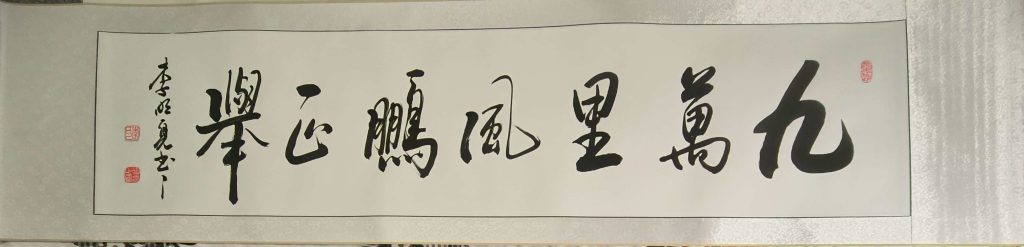 九萬里風鵬正舉
李明亮书